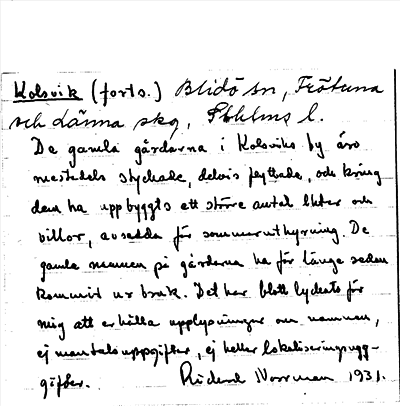 Kolsvik (forts.) Blidö sn, Frötuna
och Länna skg, Sthlms l.
De gamla gårdarna i Kolsviks by äro
mestadels styckade, delvis flyttade, och kring
dem ha uppbyggts ett större antal hus och
villor, avsedda för sommaruthyrning. De
gamla namnen på gårdarna ha för länge sedan
kommit ur bruk. Det har blott lyckats för
mig att erhålla upplysningar om namnen,
ej mantalsuppgifter, ej heller lokaliseringsupp-
gifter. Richard Norrman 1931.